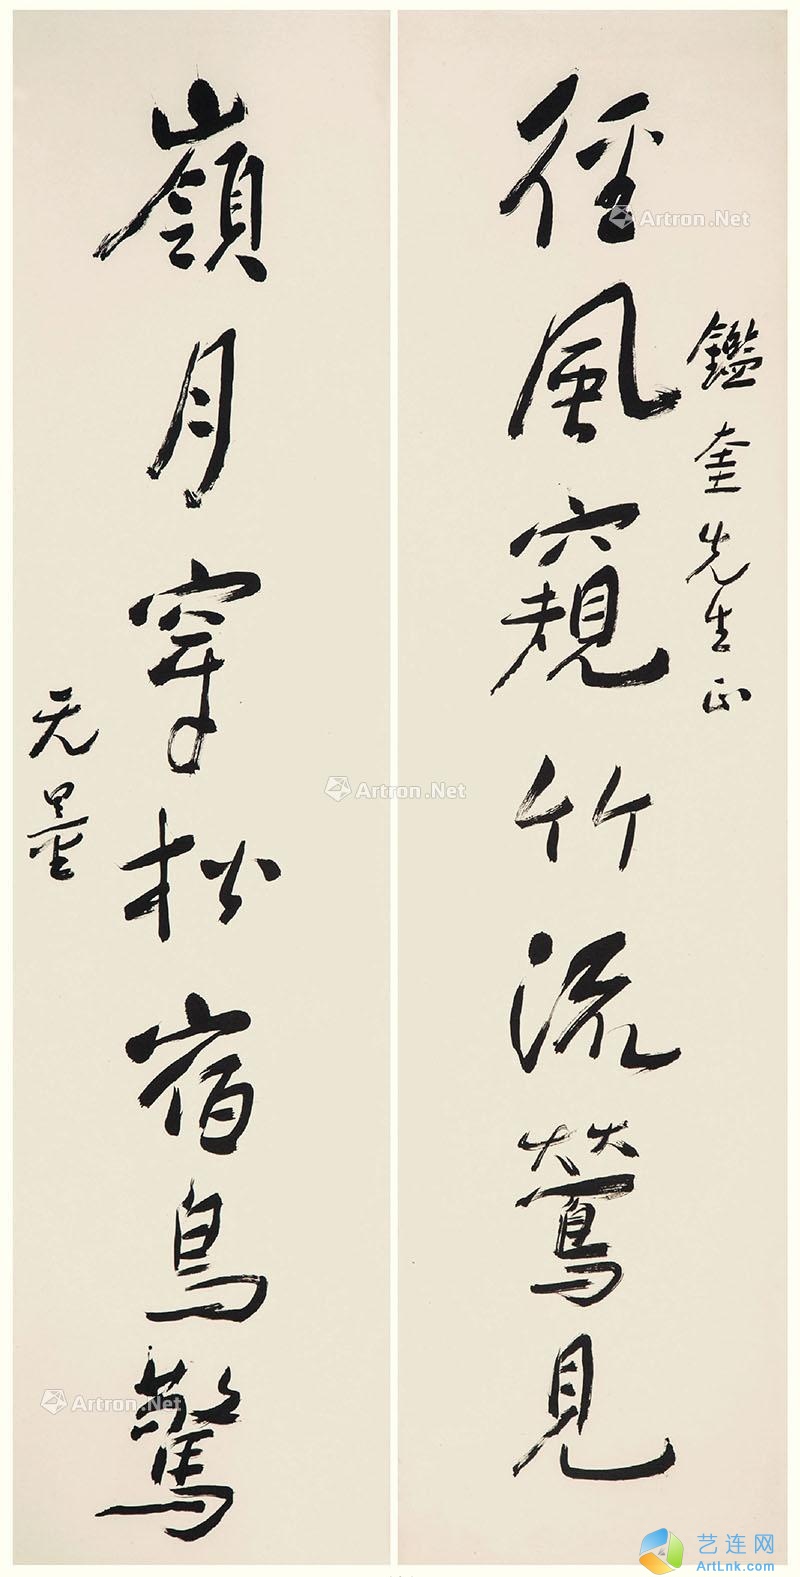 鑑奎先生正
徑風窺竹流鶯見
嶺月穿松宿鳥驚
无量
Artron.Net
Artron.Net
Artron.Net
艺连网
ArtLnk.com